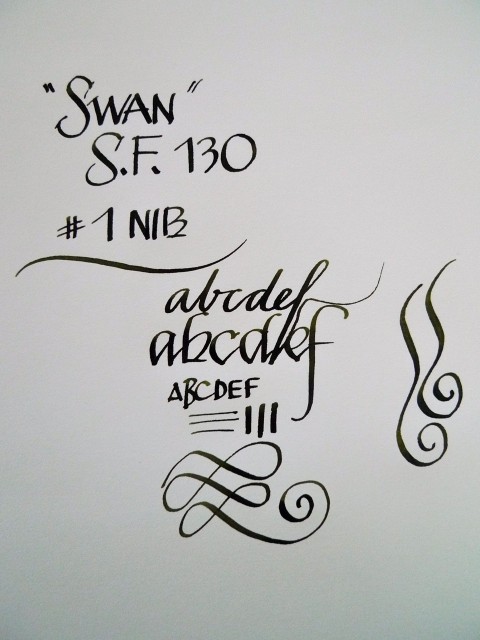 "SWAN"
S.F. 130
# 1 NIB
abcdef
abcdef
ABCDEF